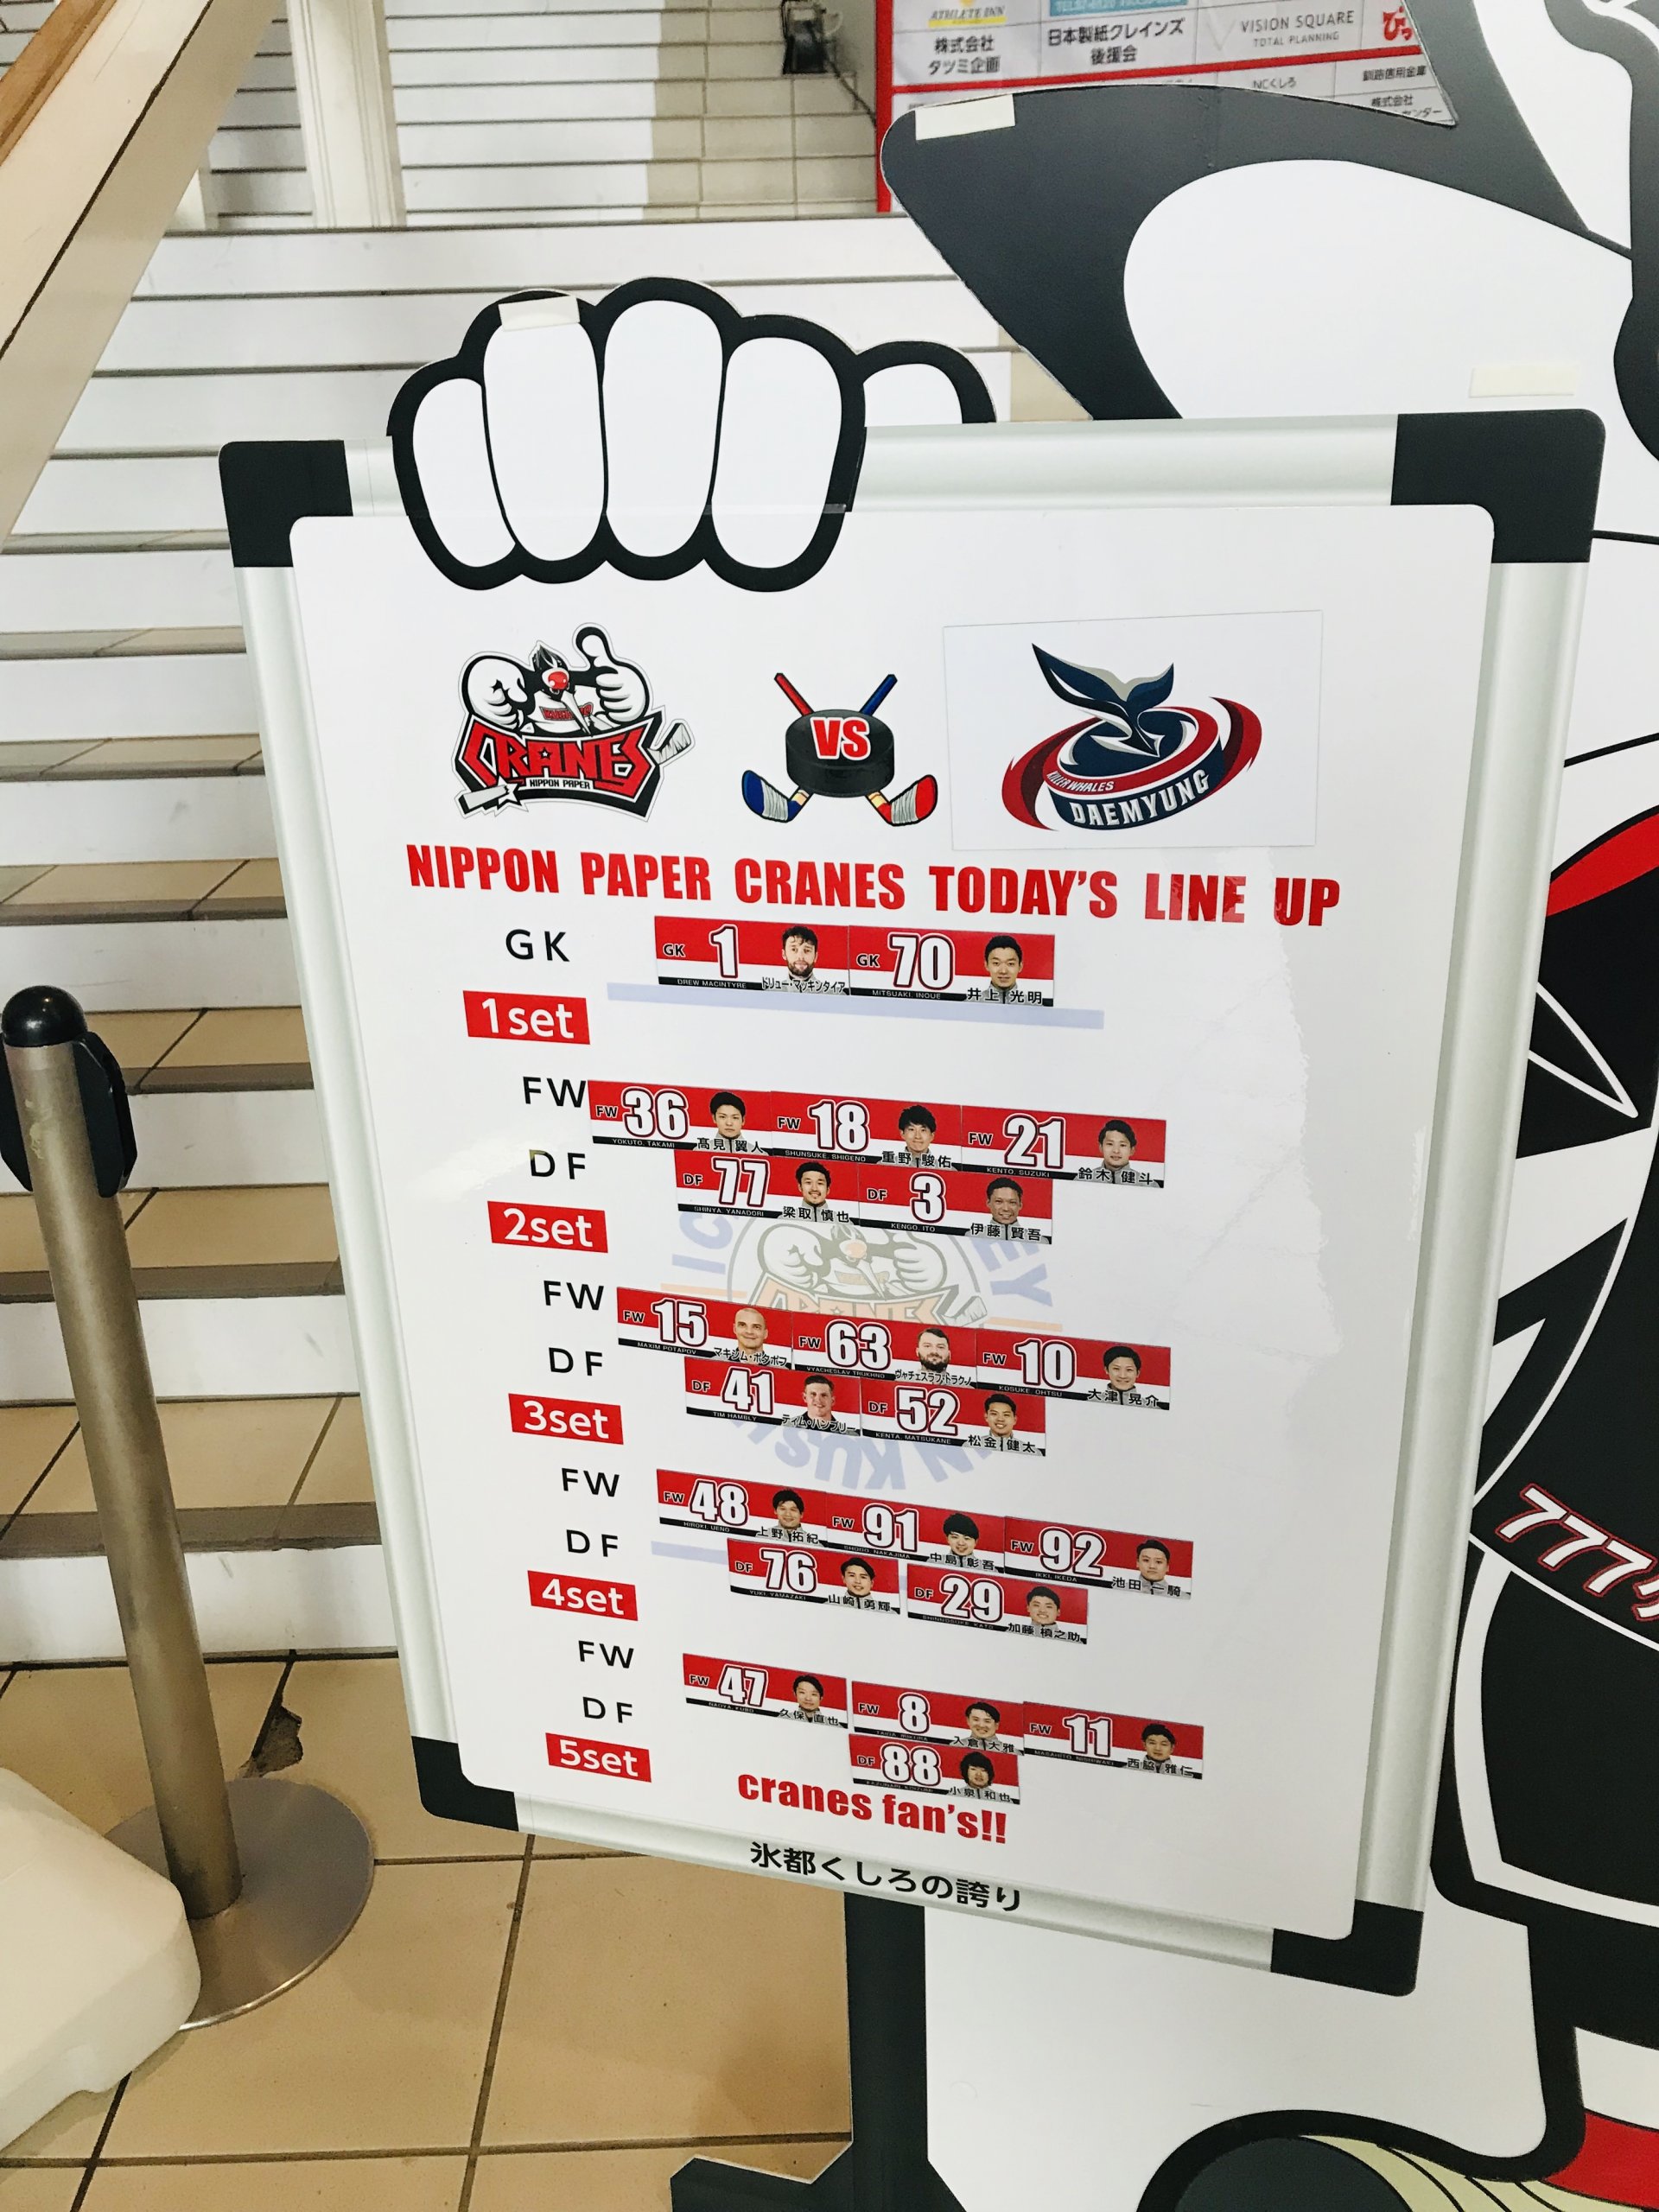 ATHLETE INN
株式会社
タツミ企画
日本製紙クレインズ
後援会
VISION SQUARE
TOTAL PLANNING
NCくしろ
釧路信用金庫
株式会社
CRANES
NIPPON PAPER
VS
KILLER WHALES
DAEMYUNG
NIPPON PAPER CRANES TODAY'S LINE UP
GK
GK 1 DREW MACINTYRE ドリュー・マッキンタイア
GK 70 MITSUAKI. INOUE 井上 光明
1set
FW
FW 36 YOKUTO. TAKAMI 髙見 翼人
FW 18 SHUNSUKE. SHIGENO 重野 駿佑
FW 21 KENTO. SUZUKI 鈴木 健斗
DF
DF 77 SHINYA. YANADORI 梁取 慎也
DF 3 KENGO. ITO 伊藤 賢吾
2set
FW
FW 15 MAXIM POTAPOV マキシム・ポタポフ
FW 63 ヴャチェスラフ・トラクノ
FW 10 KOSUKE. OHTSU 大津 晃介
DF
DF 41 TIM HAMBLY ティム・ハンブリー
DF 52 KENTA. MATSUKANE 松金 健太
3set
FW
FW 48 HIROKI. UENO 上野 拓紀
FW 91 SHOGO. NAKAJIMA 中島 彰吾
FW 92 IKKI. IKEDA 池田 一騎
DF
DF 76 YUKI. YAMAZAKI 山崎 勇輝
DF 29 加藤 槙之助
4set
FW
FW 47 NAOYA. KUBO 久保 直也
FW 8 入倉 大雅
FW 11 西脇 雅仁
DF
DF 88 小泉 和也
5set
cranes fan's!!
氷都くしろの誇り
777